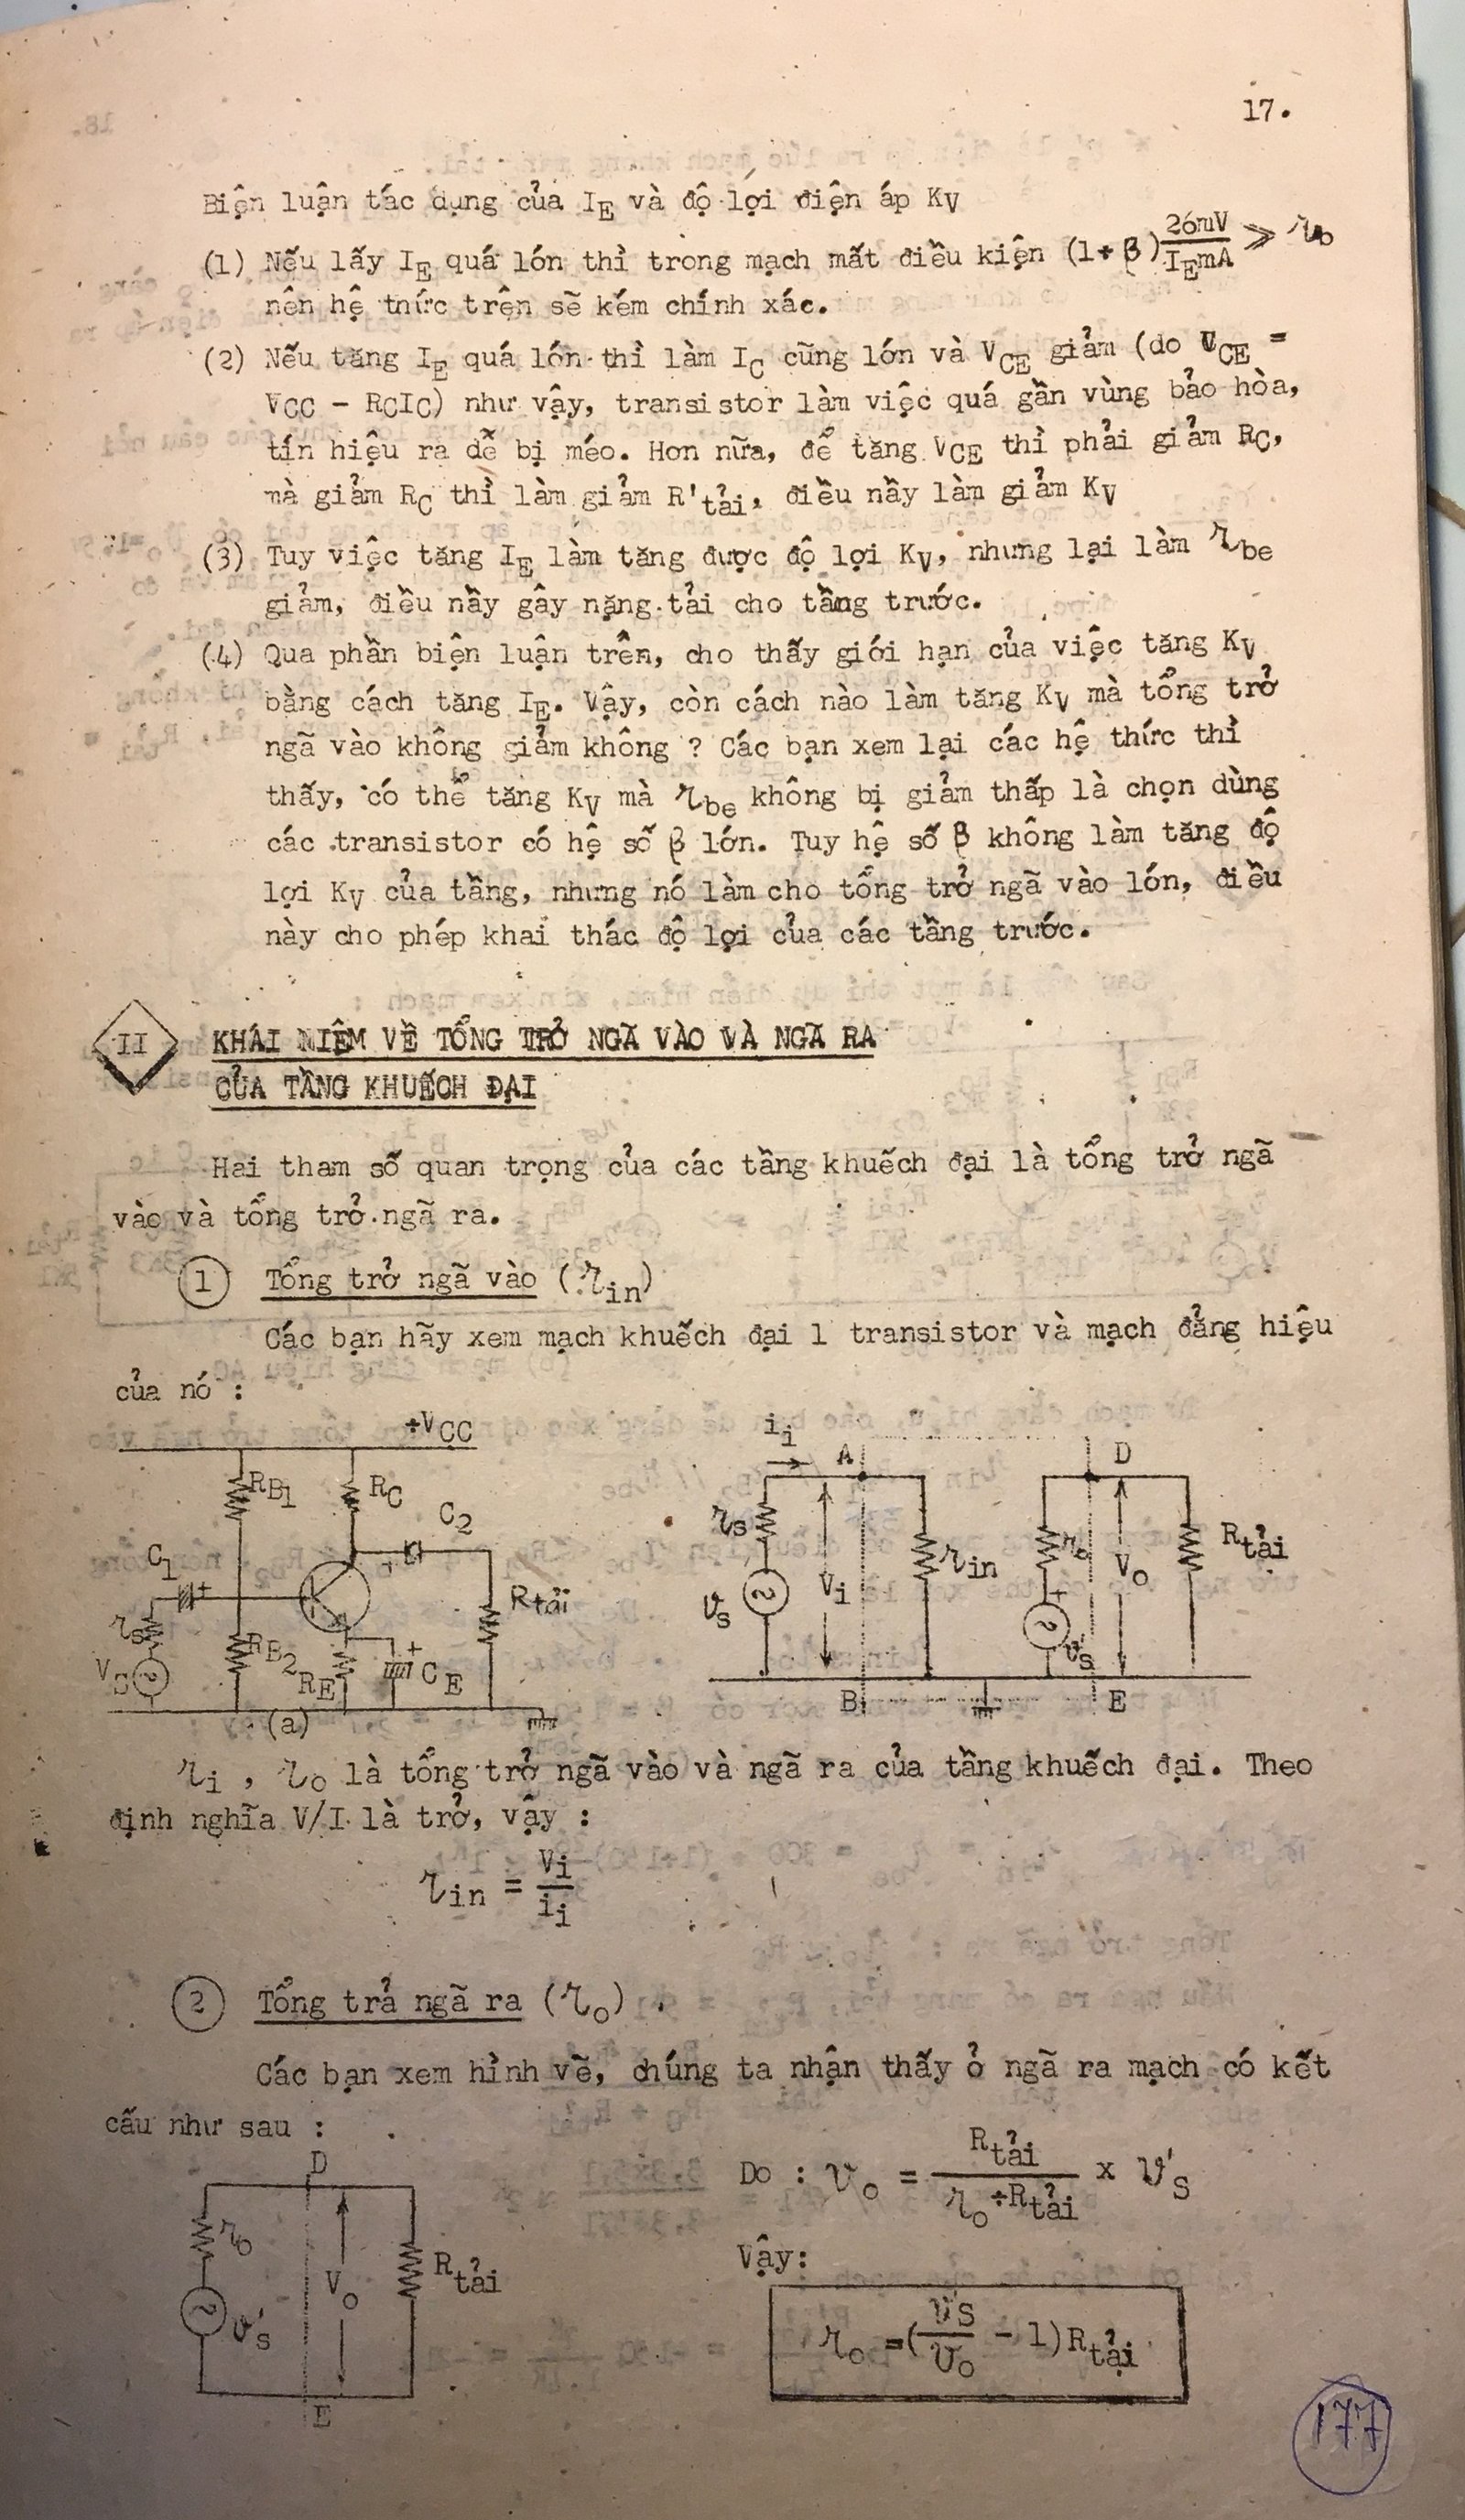 17.
Biện luận tác dụng của IE và độ lợi điện áp KV
(1) Nếu lấy IE quá lớn thì trong mạch mất điều kiện (1+β) 26mV/IEmA ≫ rb
nên hệ thức trên sẽ kém chính xác.
(2) Nếu tăng IE quá lớn thì làm IC cũng lớn và VCE giảm (do VCE =
VCC - RCIC) như vậy, transistor làm việc quá gần vùng bảo hòa,
tín hiệu ra dễ bị méo. Hơn nữa, để tăng VCE thì phải giảm RC,
mà giảm RC thì làm giảm R'tải, điều nầy làm giảm KV
(3) Tuy việc tăng IE làm tăng được độ lợi KV, nhưng lại làm rbe
giảm, điều nầy gây nặng tải cho tầng trước.
(4) Qua phần biện luận trên, cho thấy giới hạn của việc tăng KV
bằng cách tăng IE. Vậy, còn cách nào làm tăng KV mà tổng trở
ngã vào không giảm không ? Các bạn xem lại các hệ thức thì
thấy, có thể tăng KV mà rbe không bị giảm thấp là chọn dùng
các transistor có hệ số β lớn. Tuy hệ số β không làm tăng độ
lợi KV của tầng, nhưng nó làm cho tổng trở ngã vào lớn, điều
này cho phép khai thác độ lợi của các tầng trước.
II KHÁI NIỆM VỀ TỔNG TRỞ NGÃ VÀO VÀ NGÃ RA
CỦA TẦNG KHUẾCH ĐẠI
Hai tham số quan trọng của các tầng khuếch đại là tổng trở ngã
vào và tổng trở ngã ra.
1 Tổng trở ngã vào (rin)
Các bạn hãy xem mạch khuếch đại 1 transistor và mạch đẳng hiệu
của nó :
+VCC
RB1
RC
C2
C1
rs
VS
RB2
RE
CE
+
Rtải
(a)
ii
A
D
rs
vs
Vi
rin
ro
+
v's
Vo
Rtải
B
E
ri , ro là tổng trở ngã vào và ngã ra của tầng khuếch đại. Theo
định nghĩa V/I là trở, vậy :
rin = Vi/ii
2 Tổng trả ngã ra (ro)
Các bạn xem hình vẽ, chúng ta nhận thấy ở ngã ra mạch có kết
cấu như sau :
D
ro
v's
Vo
Rtải
E
Do : vo = Rtải/(ro+Rtải) x v'S
Vậy:
ro =(v'S/vo - 1)Rtải
177